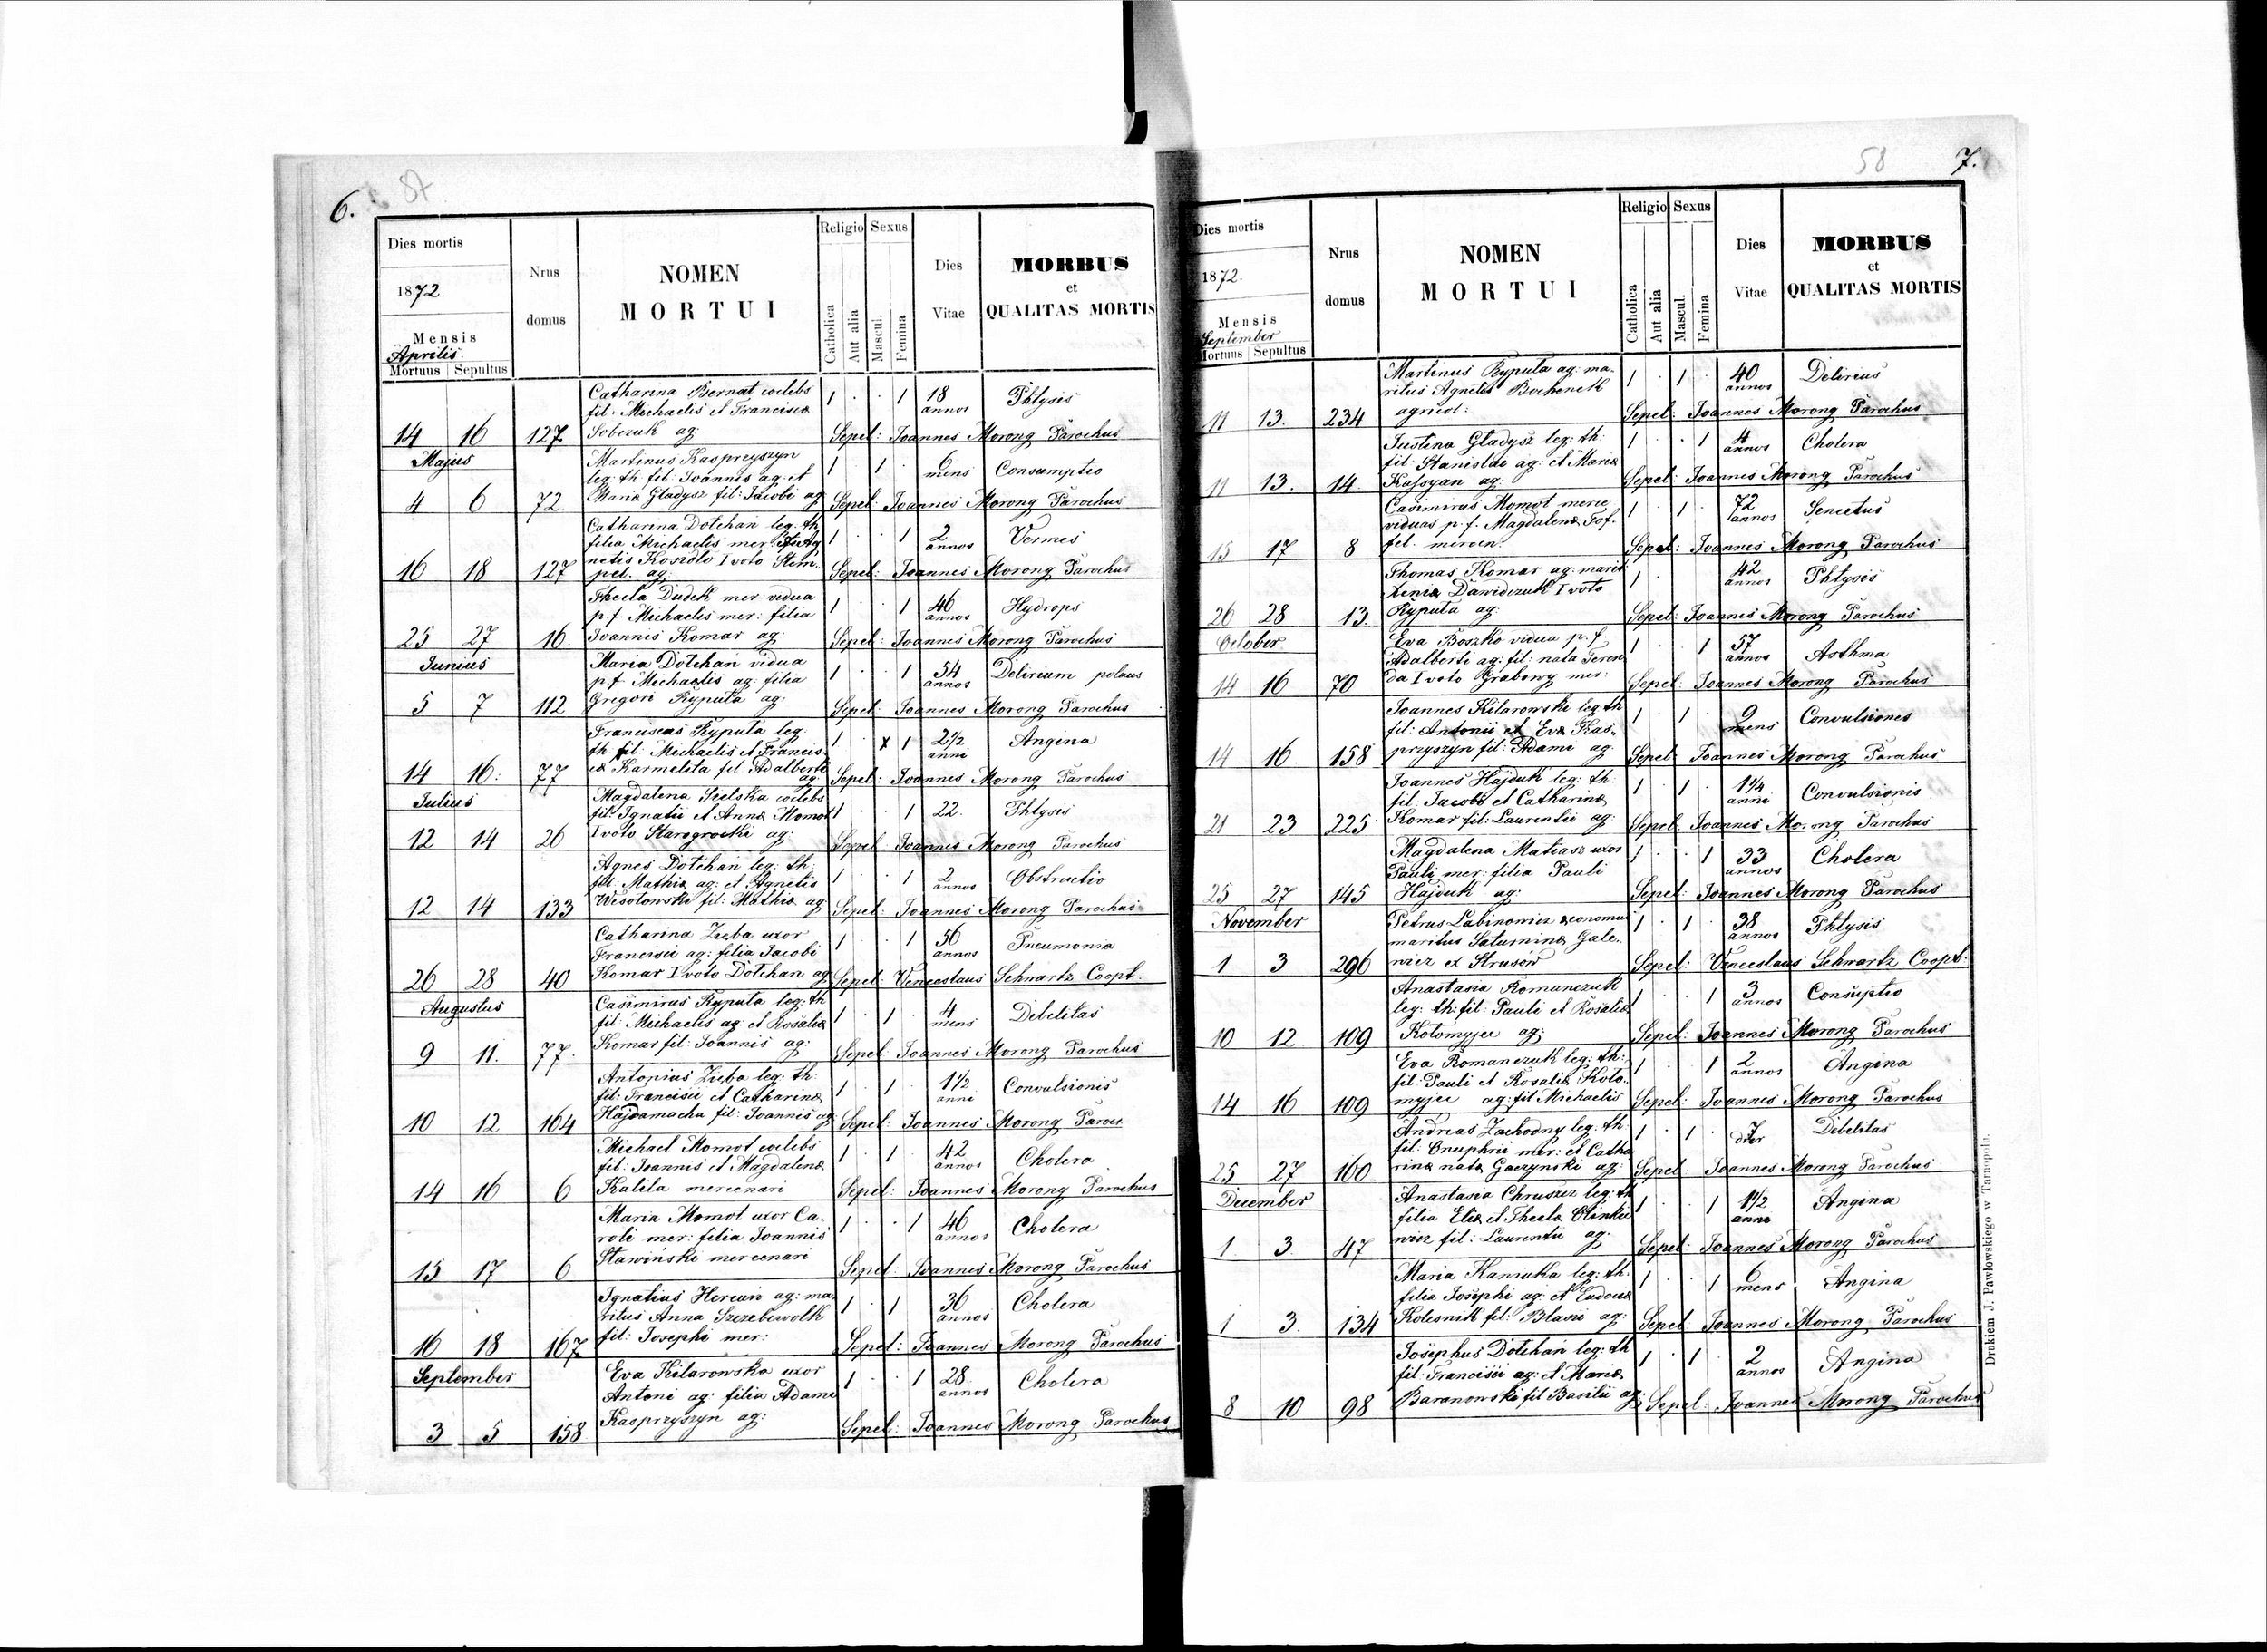 6. 57
Dies mortis
1872.
Mensis
Aprilis
Mortuus Sepultus
Nrus
domus
NOMEN
MORTUI
Religio Sexus
Catholica
Aut alia
Mascul.
Femina
Dies
Vitae
MORBUS
et
QUALITAS MORTIS
Catharina Bernat coelebs
fil. Michaelis et Francisca
14 16 127 Sobczuk ag:
1 · · 1 18 annos Phtysis
Sepel: Joannes Morong Parochus
Majus
Martinus Kasprzyszyn
leg: th. fil: Joannis ag: et
4 6 72 Maria Gladysz fil: Jacobi ag
1 · 1 · 6 mens Consumptio
Sepel: Joannes Morong Parochus
Catharina Dotchan leg. th
filia Michaelis mer: et Ag
netis Kosidlo I voto Stem
16 18 127 pel. ag.
1 · · 1 2 annos Vermes
Sepel: Joannes Morong Parochus
Thecla Dudek mer: vidua
p f. Michaelis mer: filia
25 27 16 Joannis Komar ag:
1 · · 1 46 annos Hydrops
Sepel: Joannes Morong Parochus
Junius
Maria Dotchan vidua
p f. Michaelis ag: filia
5 7 112 Gregori Ryputa ag:
1 · · 1 54 annos Delirium
Sepel: Joannes Morong Parochus
Ryputa leg:
th. fil: Michaelis et Francis
ca Karmelita fil: Adalberti
14 16: 77 ag:
1 · x 1 2 1/2 anni Angina
Sepel: Joannes Morong Parochus
Julius
Magdalena Sielska coelebs
fil: Ignatii et Anna Momot
12 14 26 I voto Starogrocki ag:
1 · · 1 22. Phtysis
Sepel: Joannes Morong Parochus
Agnes Dotchan leg: th:
fil: Mathia ag: et Agnetis
12 14 133 Wesolowski fil: Mathia ag
1 · · 1 2 annos Obstructio
Sepel: Joannes Morong Parochus
Catharina Zieba uxor
Francisci ag: filia Jacobi
26 28 40 Komar I voto Dotchan ag
1 · · 1 56 annos Pneumonia
Sepel: Venceslaus Schwartz Coopt.
Augustus
Casimirus Ryputa leg: th
fil: Michaelis ag: et Rosalia
9 11. 77. Komar fil: Joannis ag:
1 · 1 · 4 mens Debilitas
Sepel: Joannes Morong Parochus
Antonius Zieba leg: th:
fil: Francisci et Catharina
10 12 164 Hajdamacha fil: Joannis ag
1 · 1 · 1 1/2 anni Convulsionis
Sepel: Joannes Morong Paroc
Michael Momot coelebs
fil: Joannis et Magdalena
14 16 6 Kalita mercenari
1 · 1 · 42 annos Cholera
Sepel: Joannes Morong Parochus
Maria Momot uxor Ca.
roli mer: filia Joannis
15 17 6 Stawiński mercenari
1 · · 1 46 annos Cholera
Sepel: Joannes Morong Parochus
Ignatius Hercun ag: ma
ritus Anna Szczebiwolk
16 18 167 fil: Josephi mer:
1 · 1 · 36 annos Cholera
Sepel: Joannes Morong Parochus
September
Eva Kilarowska uxor
Antoni ag: filia Adami
3 5 158 Kasprzyszyn ag:
1 · · 1 28 annos Cholera
Sepel: Joannes Morong Parochus
58 7.
Dies mortis
1872.
Mensis
September
Mortuus Sepultus
Nrus
domus
NOMEN
MORTUI
Religio Sexus
Catholica
Aut alia
Mascul.
Femina
Dies
Vitae
MORBUS
et
QUALITAS MORTIS
Martinus Ryputa ag: ma
ritus Agnetis Bochenek
11 13. 234 agricol:
1 · 1 · 40 annos Delirius
Sepel: Joannes Morong Parochus
Justina Gladysz leg: th:
fil: Stanislai ag: et Maria
11 13. 14. Kassyan ag:
1 · · 1 4 annos Cholera
Sepel: Joannes Morong Parochus
Casimirus Momot merce
viduas p. f. Magdalena Tof.
15 17 8 fel. mercen.
1 · 1 · 72 annos Senectus
Sepel: Joannes Morong Parochus
Thomas Komar ag: marit
Xenia Dawidczuk I voto
26 28 13. Ryputa ag:
1 · 42 annos Phtysis
Sepel: Joannes Morong Parochus
October
Eva Boszko vidua p. f.
Adalberti ag: fil: nata Feren
14 16 70 da I voto Grabowy mer:
1 · · 1 57 annos Asthma
Sepel: Joannes Morong Parochus
Joannes Kilarowski leg: th
fil: Antonii et Eva Kas
14 16 158 przyszyn fil: Adami ag:
1 · 1 · 9 mens Convulsiones
Sepel: Joannes Morong Parochus
Joannes Hajduk leg: th:
fil: Jacobi et Catharina
21 23 225 Komar fil: Laurentii ag:
1 · 1 · 1 1/4 anni Convulsionis
Sepel: Joannes Morong Parochus
Magdalena Matiasz uxor
Pauli mer: filia Pauli
25 27 145 Hajduk ag:
1 · · 1 33 annos Cholera
Sepel: Joannes Morong Parochus
November
Petrus Labinowicz œconomus
maritus Saturnina Gale
1 3 296 wicz ex Strusow
1 · 1 · 38 annos Phtysis
Sepel: Venceslaus Schwartz Coopt.
Anastasia Romanczuk
leg: th: fil: Pauli et Rosalia
10 12 109 Kolomyjec ag:
1 · · 1 3 annos Consuptio
Sepel: Joannes Morong Parochus
Eva Romanczuk leg: th:
fil: Pauli et Rosalia Kolo
14 16 109 myjec ag: fil Michaelis
1 · · 1 2 annos Angina
Sepel: Joannes Morong Parochus
Andreas Zachodny leg: th:
fil: Onuphrii mer: et Catha
25 27 160 rina nata Gaczynski ag:
1 · 1 · 7 Debilitas
Sepel: Joannes Morong Parochus
December
Anastasia Chruszcz leg: th
filia Elia et Thecla Olinkie
1. 3. 47 wicz fil: Laurentii ag:
1 · · 1 1 1/2 anni Angina
Sepel: Joannes Morong Parochus
Maria Kaniuka leg: th.
filia Josephi ag: et Eudocia
1 3. 134 Kolesnik fil: Blasii ag:
1 · · 1 6 mens Angina
Sepel: Joannes Morong Parochus
Josephus Dotchan leg: th
fil: Francisci ag: et Maria
8 10 98 Baranowski fil Basilii ag:
1 · 1 · 2 annos Angina
Sepel: Joannes Morong Parochus
Drukiem J. Pawłowskiego w Tarnopolu.